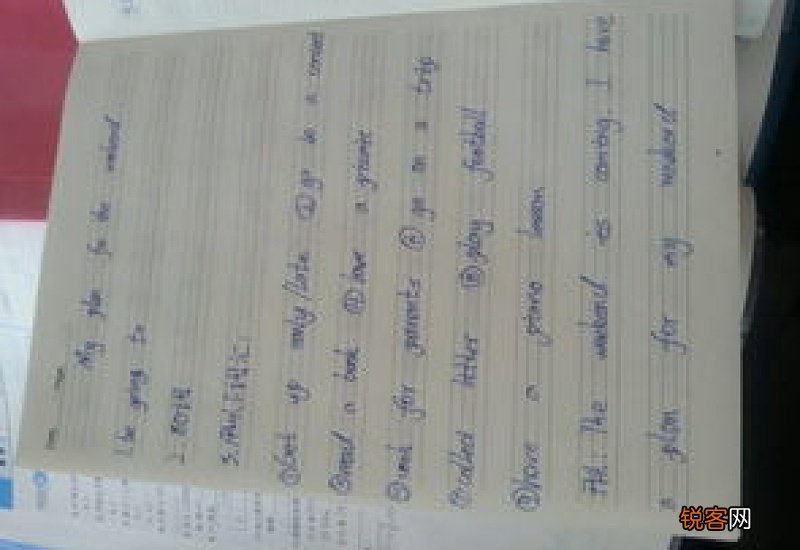 My plan for the weekend
1. be going to
2.
3.
①Get up early/late ②go to a concert
③read a book ④have a picnic
⑤cook for parents ⑥go on a trip
⑦collect litter ⑧play football
⑨have a piano lesson
开头: The weekend is coming. I have
a plan for my weekend
锐客网